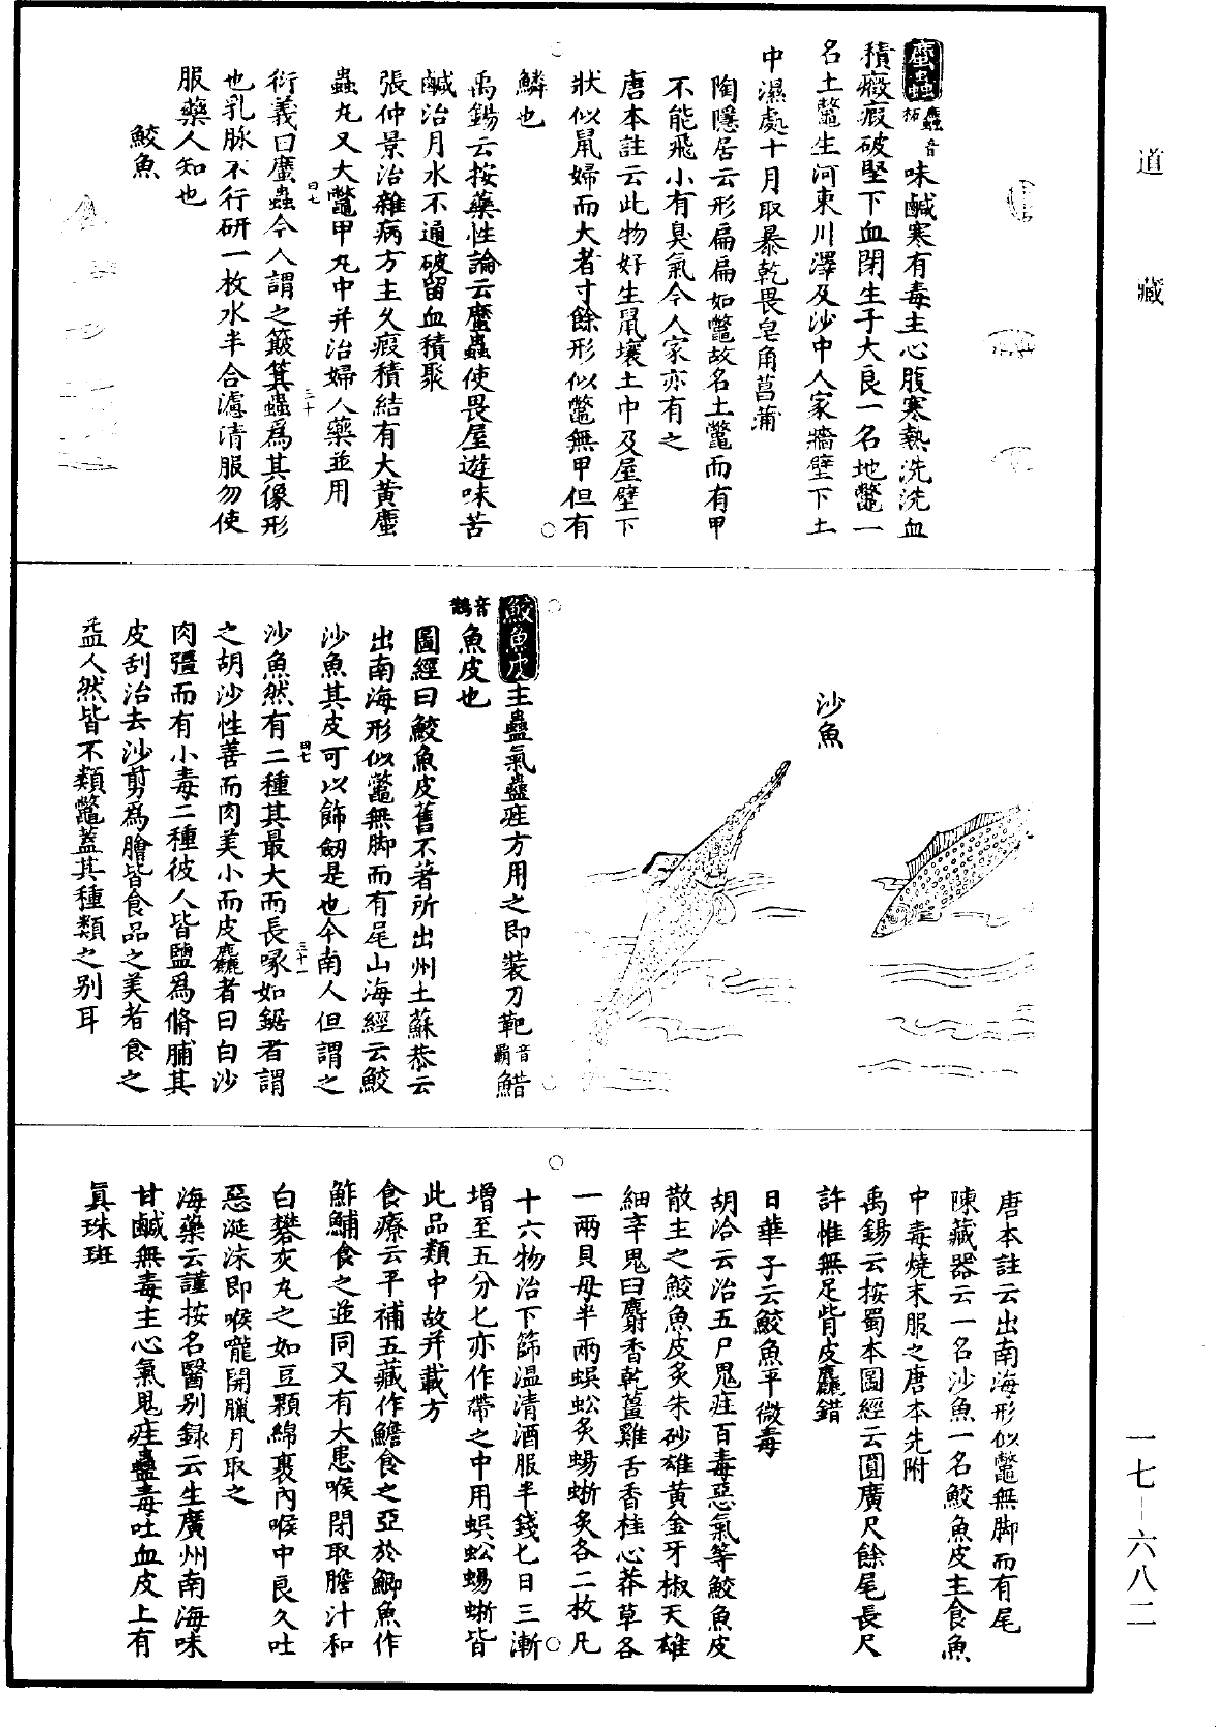 道藏
䗪蟲音柘味鹹寒有毒主心腹寒熱洗洗血
積癥瘕破堅下血閉生子大良一名地鱉一
名土鱉生河東川澤及沙中人家牆壁下土
中濕處十月取暴乾畏皂角菖蒲
陶隱居云形扁扁如鱉故名土鱉而有甲
不能飛小有臭氣今人家亦有之
唐本註云此物好生鼠壤土中及屋壁下
狀似鼠婦而大者寸餘形似鱉無甲但有
鱗也
禹錫云按藥性論云䗪蟲使畏屋遊味苦
鹹治月水不通破留血積聚
張仲景治雜病方主久瘕積結有大黃䗪
蟲丸又大鱉甲丸中并治婦人藥並用
衍義曰䗪蟲今人謂之簸箕蟲爲其像形
也乳脉不行研一枚水半合濾清服勿使
服藥人知也
四七
三十
鮫魚
沙魚
鮫魚皮主蠱氣蠱疰方用之即裝刀靶音霸䱜
音鵲魚皮也
圖經曰鮫魚皮舊不著所出州土蘇恭云
出南海形似鱉無脚而有尾山海經云鮫
沙魚其皮可以飾劒是也今南人但謂之
沙魚然有二種其最大而長喙如鋸者謂
之胡沙性善而肉美小而皮麤者曰白沙
肉彊而有小毒二種彼人皆鹽爲脩脯其
皮刮治去沙剪爲膾皆食品之美者食之
益人然皆不類鱉蓋其種類之别耳
四七
三十一
唐本註云出南海形似鱉無脚而有尾
陳藏器云一名沙魚一名鮫魚皮主食魚
中毒燒末服之唐本先附
禹錫云按蜀本圖經云圓廣尺餘尾長尺
許惟無足背皮麤錯
日華子云鮫魚平微毒
胡洽云治五尸鬼疰百毒惡氣等鮫魚皮
散主之鮫魚皮炙朱砂雄黃金牙椒天雄
細辛鬼臼麝香乾薑雞舌香桂心莽草各
一兩貝母半兩蜈蚣炙蜴蜥炙各二枚凡
十六物治下篩温清酒服半錢匕日三漸
增至五分匕亦作帶之中用蜈蚣蜴蜥皆
此品類中故并載方
食療云平補五藏作鱠食之亞於鯽魚作
鮓鯆食之並同又有大患喉閉取膽汁和
白礬灰丸之如豆顆綿裹內喉中良久吐
惡涎沫即喉嚨開臘月取之
海藥云謹按名醫别録云生廣州南海味
甘鹹無毒主心氣鬼疰蠱毒吐血皮上有
真珠斑
一七-六八二